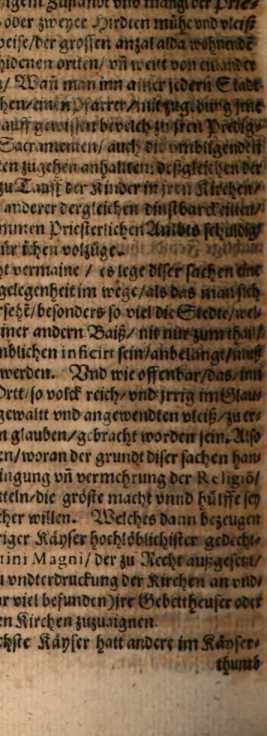 igem Zustandt vnd mangl der Prie-
oder zweyer Hirdten mühe vnd vleiß
weise/der grossen anzal alda wohnendē
hidenen orten/ vñ weitt von einander
n/ Wañ man inn ainer jedern Stadt
hen/einen Pfarrer/mit zugebung
auff gewissen bevelch zu jren Predig-
Sacramenten/ auch die vmbligenden
ten zugehen anhallten: deßgleichen der
zu Tauff der Kinder in jren Kirchen/
anderer dergleichen dinstbarckeitten/
mmen Priesterlichen Ambts schuldig
ür ichen volzüge.
ht vermaine / es lege diser sachen eine
gelegenheit im wege/als das man sich
rsehe/besonders so viel die Stedte/wel-
iner andern Baiß/ nit nur zum thail/
nblichen inficirt sein/anbelangt/muß
werden. Vnd wie offenbar/das/inn
Ortt/so volck reich/vnd jrrig im Glau-
gewaltt vnd angewendten vleiß/zu er-
n glauben/gebracht worden sein. Also
en/woran der grundt diser sachen han-
ingung vñ vermehrung der Religiō/
tteln/die gröste macht vnnd hülffe sey
cher willen. Welches dann bezeugen
riger Käyser hochlöblichister gedecht-
tini Magni/ der zu Recht außgesetzt/
u vndterdruckung der Kirchen an vnd-
ar viel befunden) jre Gebettheuser oder
en Kirchen zuzuaignen.
chste Käyser hatt andere im Käyser-
thumb